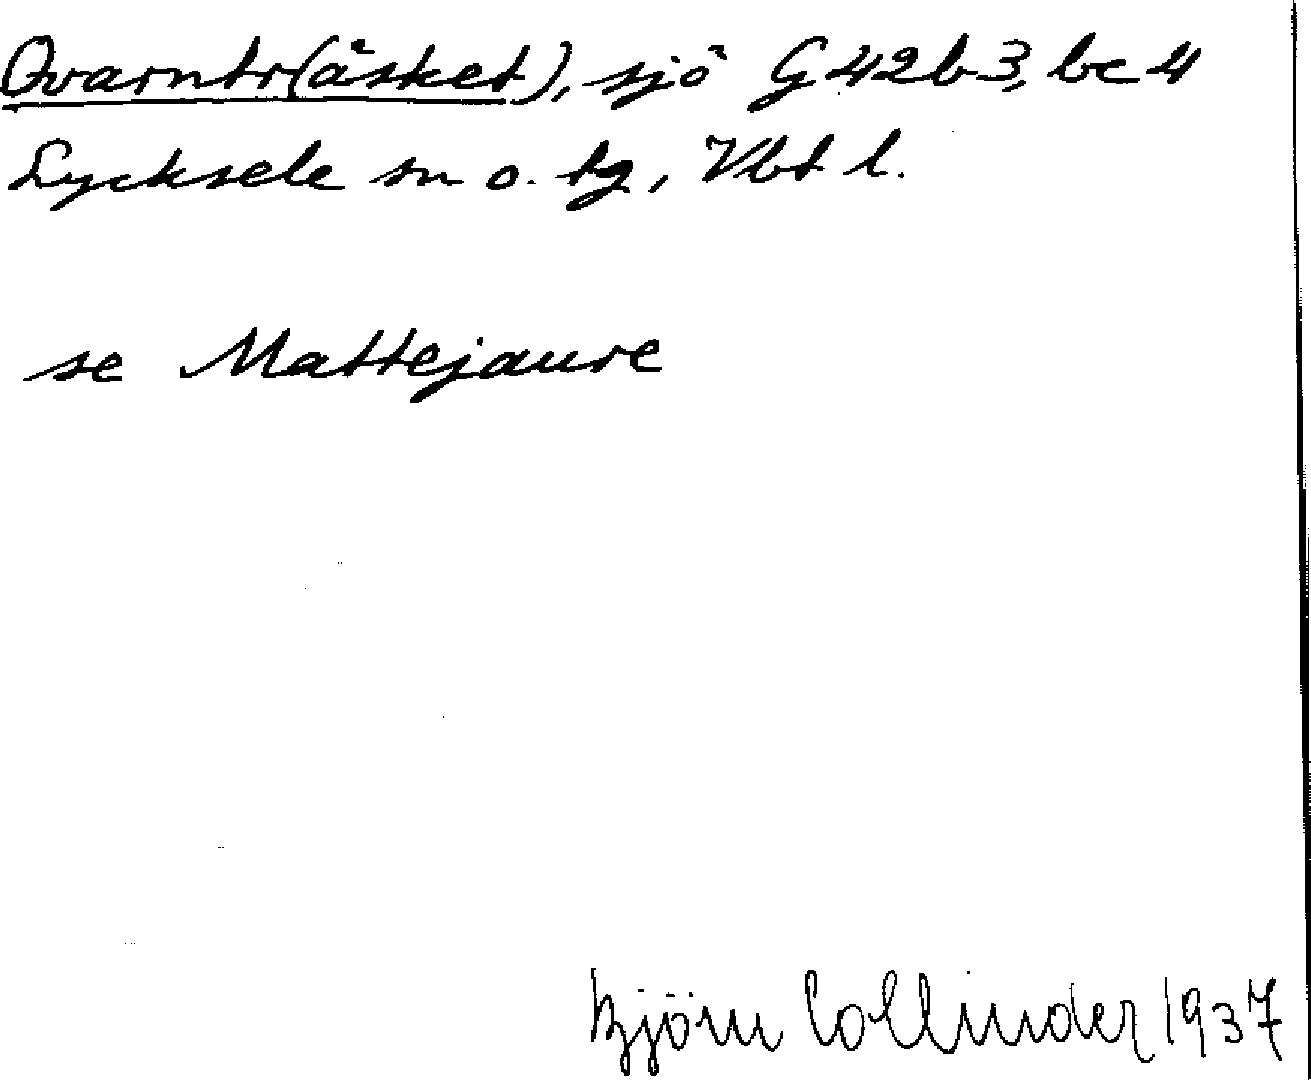 Qvarntr(äsket), sjö G 42b3, bc 4
Lycksele sn o. tg, Vbt l.
se Mattejaure
Björn Collinder 1937